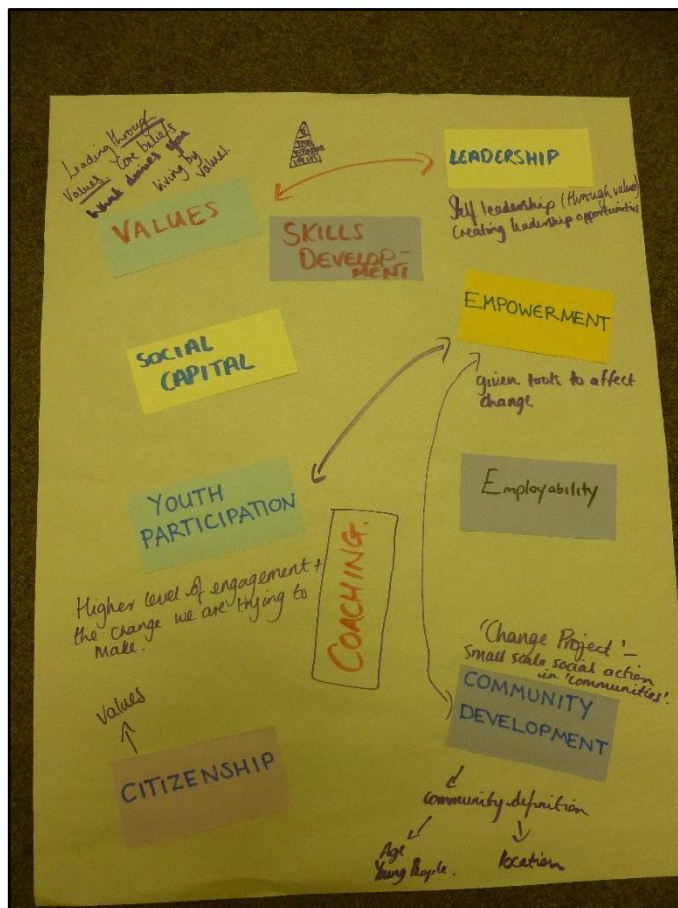 Leading through
Values. Core beliefs
What drives you
living by
values.
VALUES
SKILLS
DEVELOP-
MENT
LEADERSHIP
Self leadership (through values)
Creating leadership opportunities
SOCIAL
CAPITAL
EMPOWERMENT
given tools to affect
change
YOUTH
PARTICIPATION
Higher level of engagement +
the change we are trying to
make.
COACHING.
Employability
'Change Project' –
Small scale social action
in 'communities'.
COMMUNITY
DEVELOPMENT
community definition
Age
Young People.
location
values
CITIZENSHIP